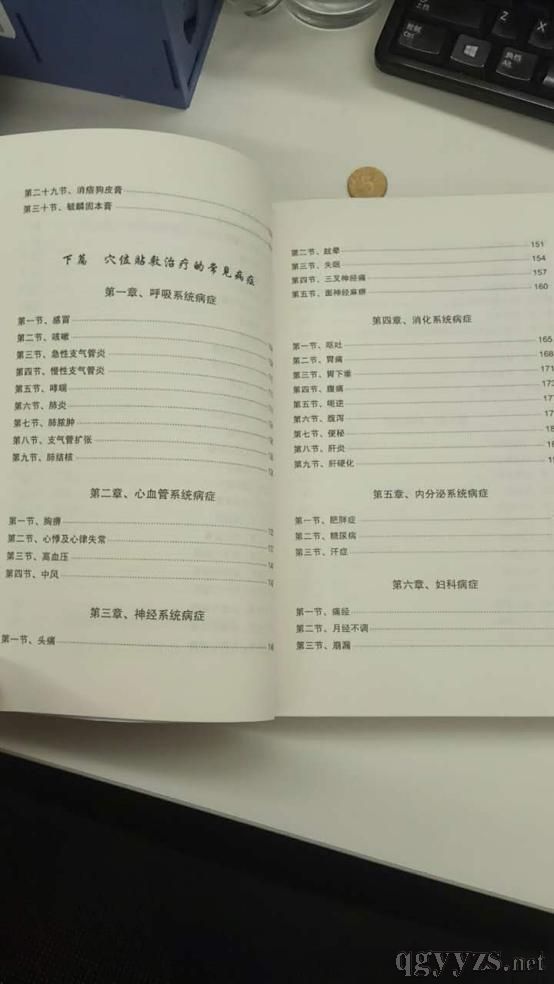 第二十九节、消痞狗皮膏
第三十节、毓麟固本膏
下篇 穴位贴敷治疗的常见病症
第一章、呼吸系统病症
第一节、感冒
第二节、咳嗽
第三节、急性支气管炎
第四节、慢性支气管炎
第五节、哮喘
第六节、肺炎
第七节、肺脓肿
第八节、支气管扩张
第九节、肺结核
第二章、心血管系统病症
第一节、胸痹
第二节、心悸及心律失常
第三节、高血压
第四节、中风
第三章、神经系统病症
第一节、头痛
第二节、眩晕 151
第三节、失眠 154
第四节、三叉神经痛 157
第五节、面神经麻痹 160
第四章、消化系统病症
第一节、呕吐 165
第二节、胃痛 168
第三节、胃下垂 171
第四节、腹痛
第五节、呃逆
第六节、腹泻
第七节、便秘
第八节、肝炎
第九节、肝硬化
第五章、内分泌系统病症
第一节、肥胖症
第二节、糖尿病
第三节、汗症
第六章、妇科病症
第一节、痛经
第二节、月经不调
第三节、崩漏
Z
Ctrl
Alt
qgyyzs.net